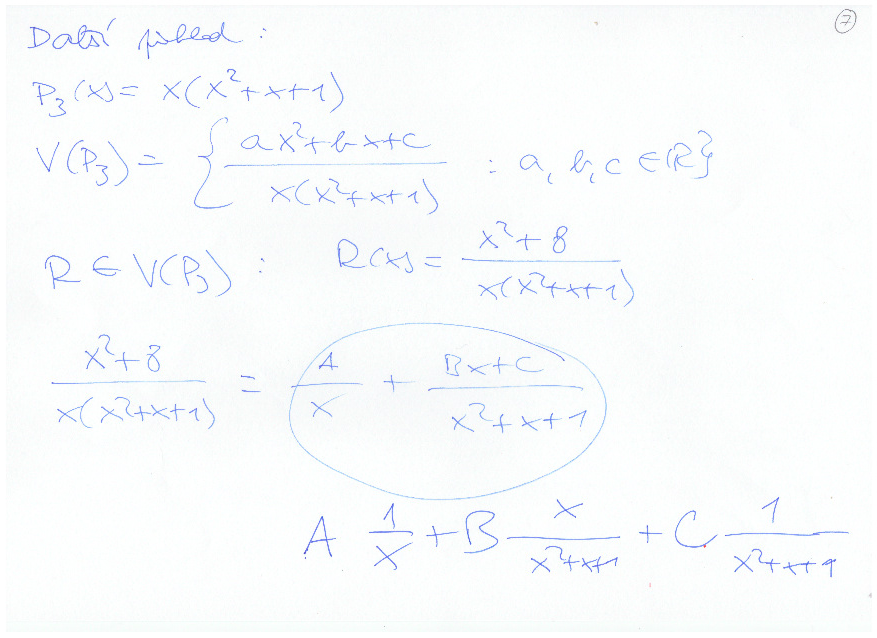 7
Další příklad :
P₃(x) = x(x²+x+1)
V(P₃) = { (ax²+bx+c)/(x(x²+x+1)) : a, b, c ∈ ℝ}
R ∈ V(P₃) : R(x) = (x²+8)/(x(x²+x+1))
(x²+8)/(x(x²+x+1)) = A/x + (Bx+C)/(x²+x+1)
A 1/x + B x/(x²+x+1) + C 1/(x²+x+1)